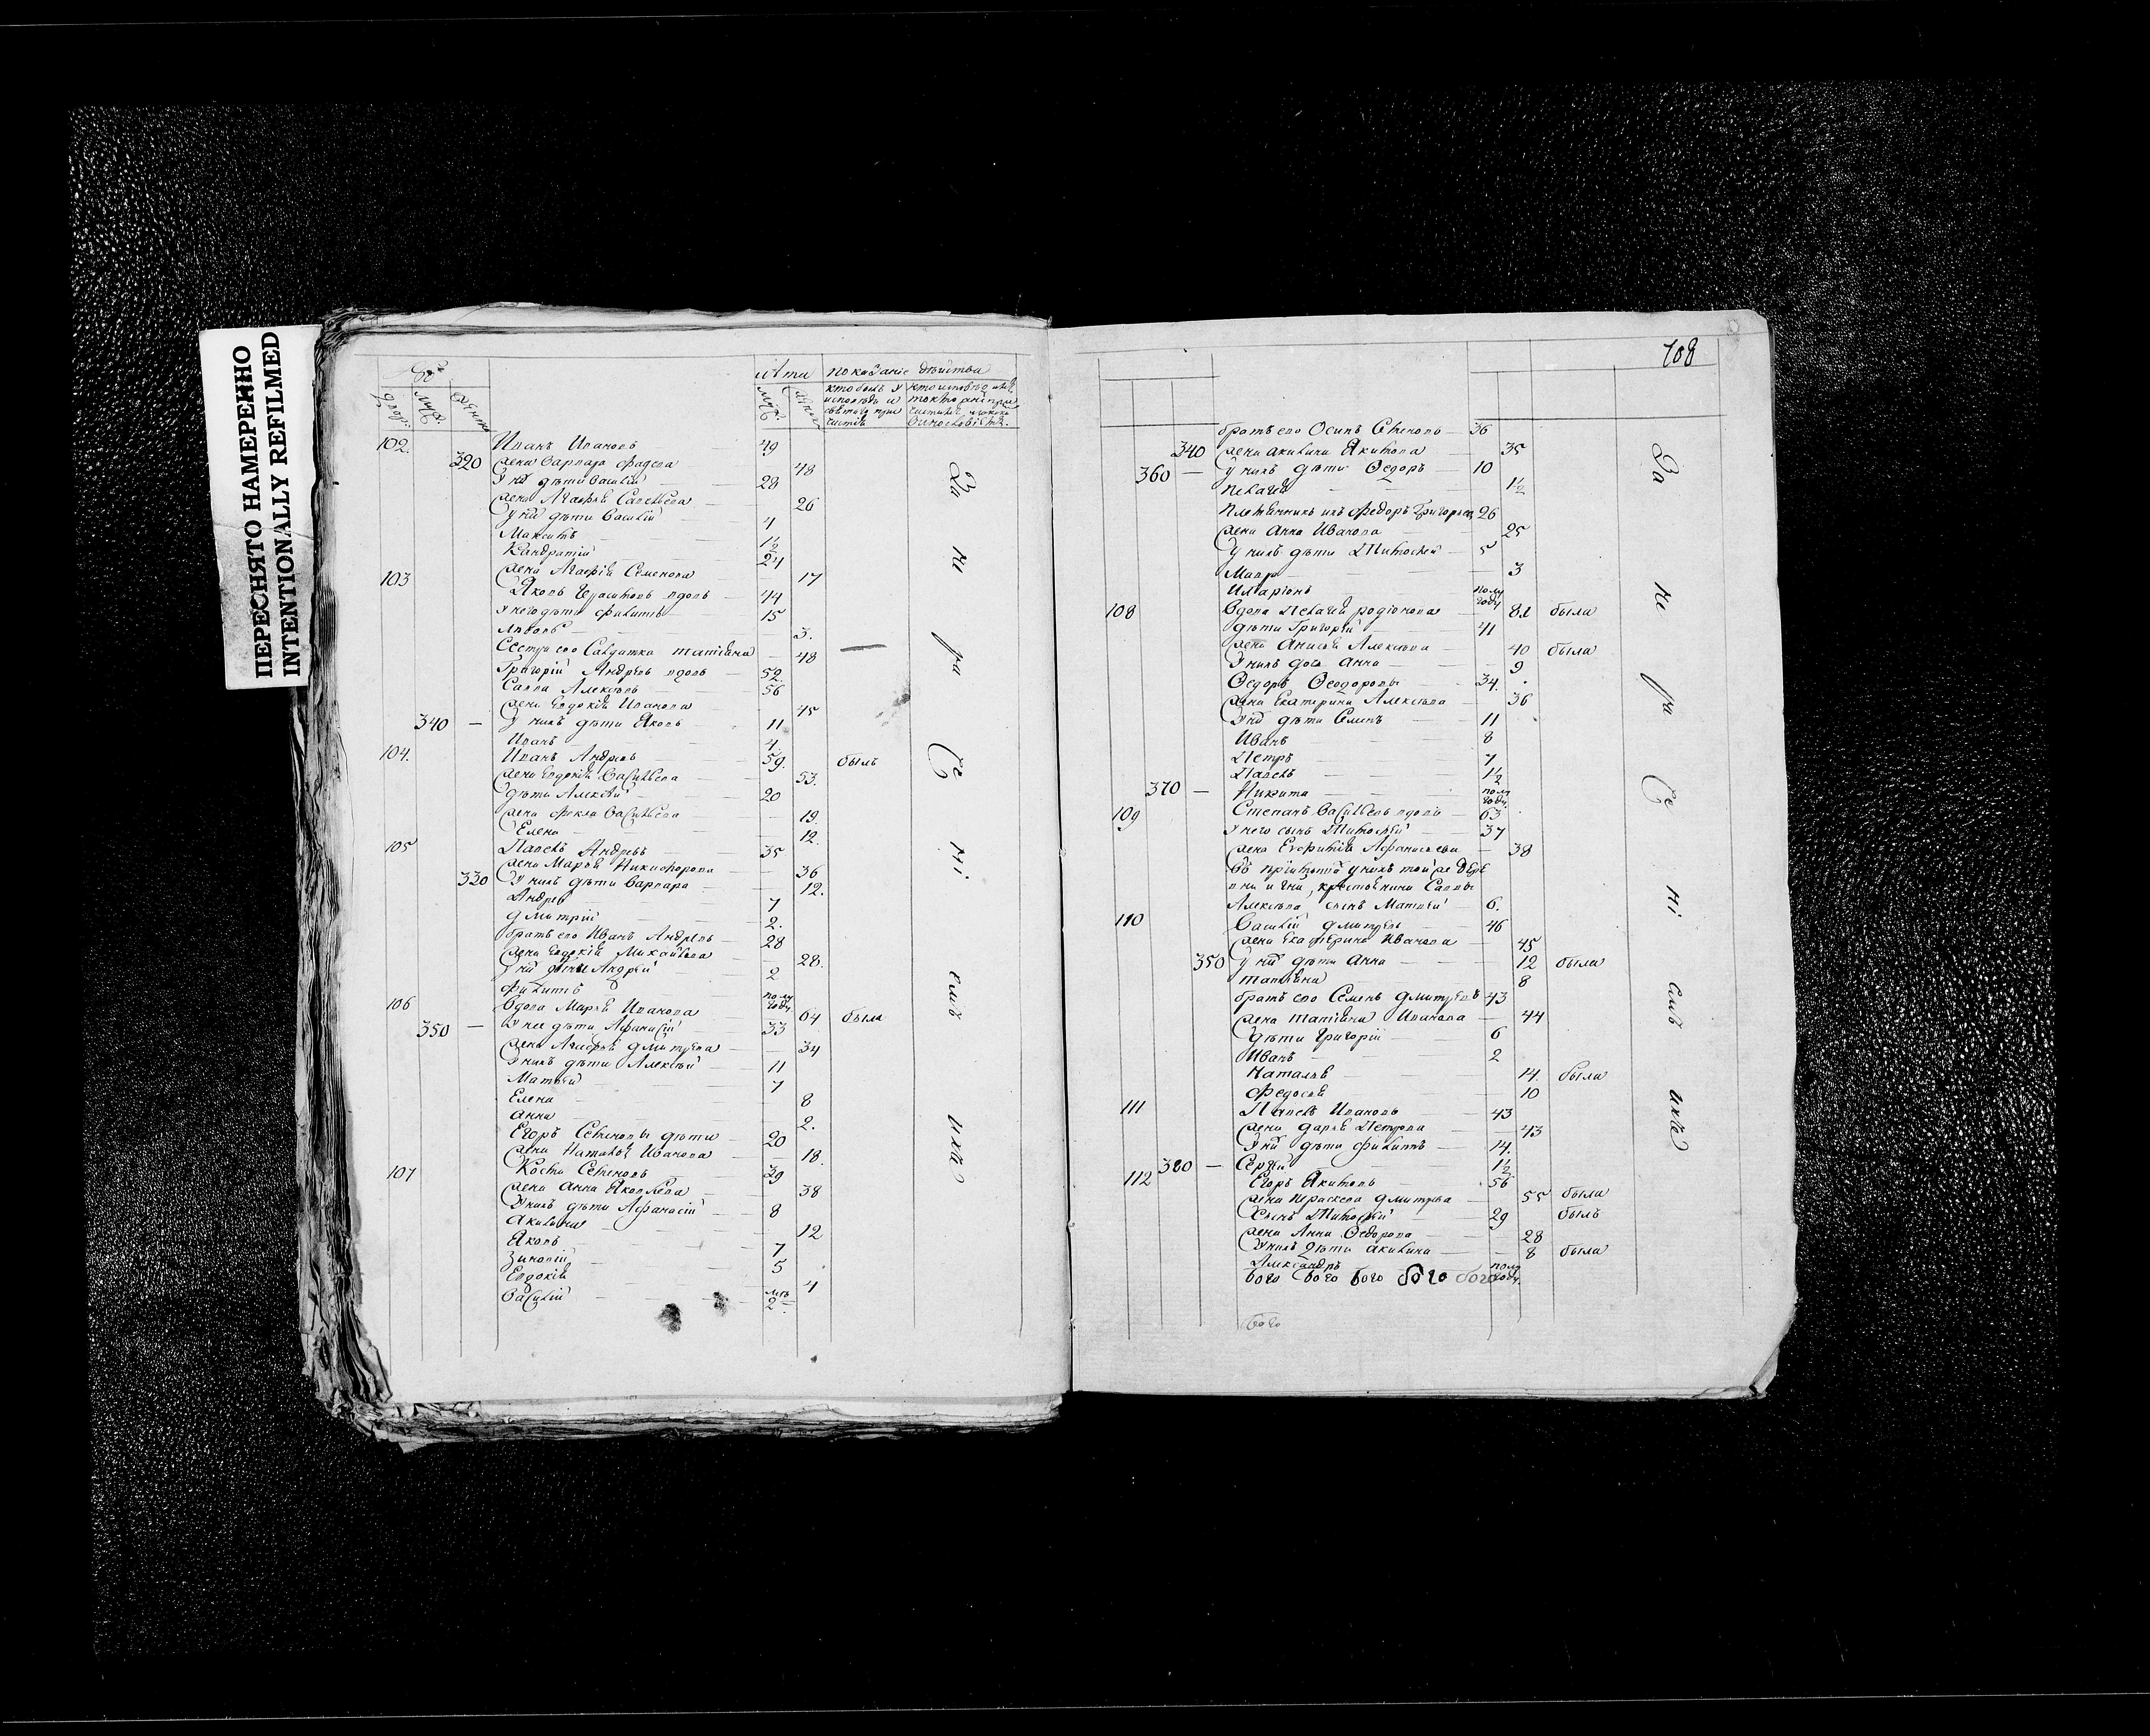 ПЕРЕСНЯТО НАМЕРЕННО
INTENTIONALLY REFILMED
№
двор: муж. женс
лѣта показанiе дѣйства
муж. женс
кто былъ у исповѣди и святаго причастiя
102. Иванъ Ивановъ 49
320 жена Варвара Фадеева 48
У них дѣти Василiй 28
жена Агафья Савельева 26
У них дѣти Василiй 4
Максимъ 1½
Кандратiй 24
жена Агафiя Семенова 17
103 Яковъ Герасимовъ вдовъ 44
У него дѣти Филипъ 15
Любовь 3.
Сестра его Салдатка татiяна 48
Григорiй Андреевъ вдовъ 52.
Савва Алексѣевъ 56
жена Евдокiя Иванова 45
340 — У нихъ дѣти Яковъ 11
Иванъ 4
104. Иванъ Андреевъ 59. былъ
жена Евдокiя Васильева 53.
дѣти Алексѣй 20
жена Фекла Васильева 19.
Елена 12.
105 Павелъ Андреевъ 35
жена Марья Никифорова 36
330 У нихъ дѣти Варвара 12.
Андрей 7
дмитрiй 2.
братъ его Иванъ Андреевъ 28
жена Евдокiя Михайлова 28.
У них дѣти Андрей 2
Филипъ полугоду
106 Вдова Марья Иванова 64 была
350 — У нее дѣти Афанасiй 33
жена Агафья дмитрева 34
У нихъ дѣти Алексѣй 11
Матвей 7
Елена 8
анна 2.
Егоръ Семеновы дѣти 20
жена Наталья Иванова 18.
107 Коста Семеновъ 39
жена Анна Яковлева 38
У нихъ дѣти Афанасiй 8
акилина 12
Яковъ 7
Зиновiй 5
Евдокiя 4
Василiй 2
За не ра Се нi емъ ихъ
108
братъ его Осипъ Семеновъ 36
340 жена акилина Якимова 35
360 — У нихъ дѣти Ѳедоръ 10
Пелагея 1½
Племянникъ ихъ Федоръ Григорьевъ 26
жена Анна Иванова 25
У нихъ дѣти Тимофей 5
Мавра 3
Иларiонъ полугоду
108 Вдова Пелагея родiонова 81 была
дѣти Григорiй 41
жена Анисья Алексѣева 40 была
У нихъ дочь Анна 9
Ѳедоръ Ѳеодоровы 34.
жена Екатерина Алексѣева 36
У них дѣти Семенъ 11
Иванъ 8
Петръ 7
Павелъ 1½
370 — Никита полугоду.
109 Степанъ Васильевъ вдовъ 63
У него сынъ Тимофей 37
жена Ефимiя Афанасьева 38
Алексѣева сынъ Матвей 6.
110 Василiй дмитревъ 46
жена Екатерина Иванова 45
350 У них дѣти Анна 12 была
татiяна 8
братъ его Семенъ дмитревъ 43
жена татiяна Иванова 44
дѣти Григорiй 6
Иванъ 2
Наталья 14. была
Федосья 10
111 Павелъ Ивановъ 43
жена дарья Петрова 43
У них дѣти Филипъ 14.
380 — Сергей 1½
112 Егоръ Якимовъ 56
жена Праскева дмитрева 55 была
Сынъ Тимофей 29 былъ
жена Анна Ѳедорова 28
У нихъ дѣти акилина 8 была
Александръ полугоду.
бого бого бого бого бого
бого
За не ра Се нi емъ ихъ